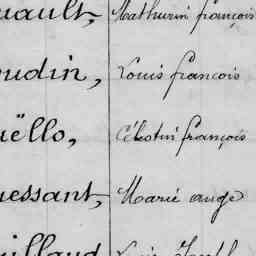 uault, Mathurin françois
oudin, Louis francois
uëllo, Célestin françois
uessant, Marie ange
uillaud